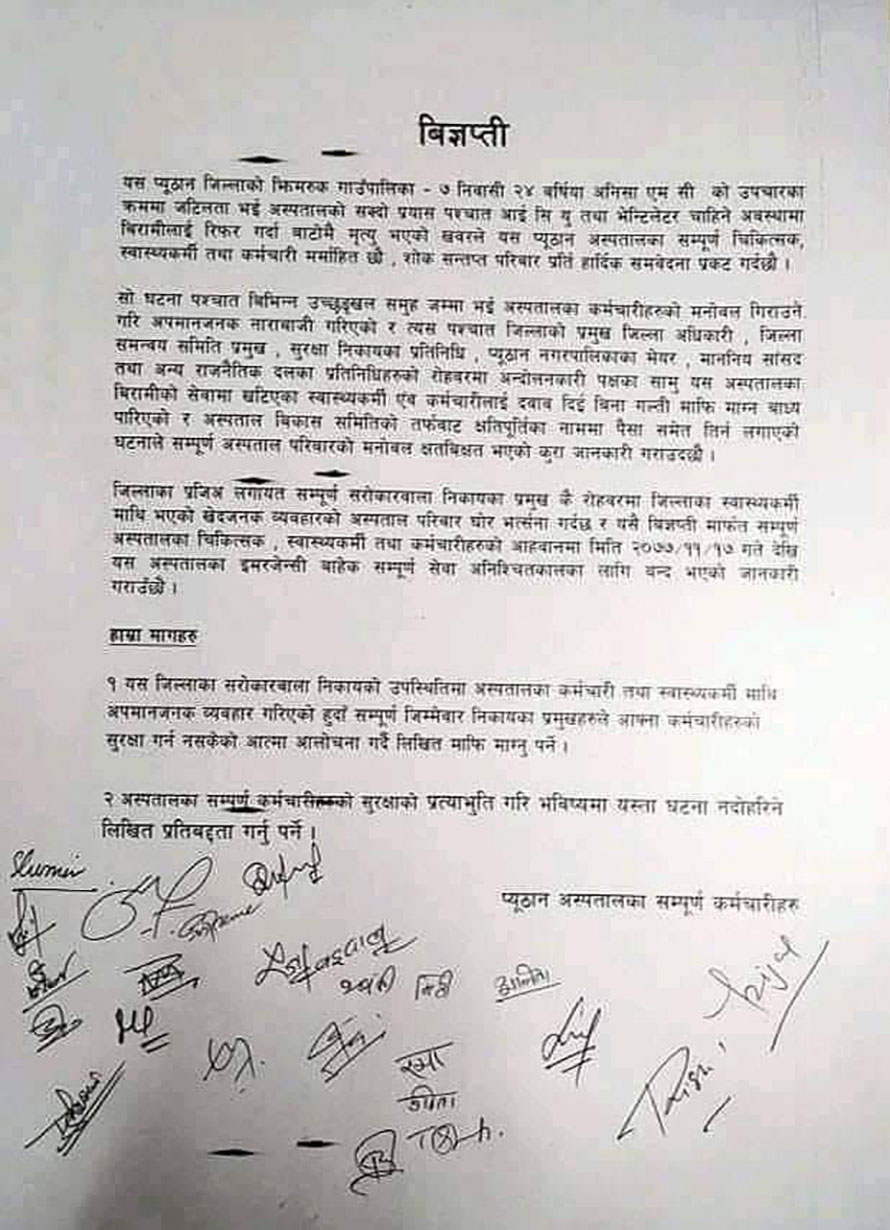 बिज्ञप्ती
यस प्यूठान जिल्लाको झिमरुक गाउँपालिका - ७ निवासी २४ बर्षिया अनिसा एम सी को उपचारका
क्रममा जटिलता भई अस्पतालको सक्दो प्रयास पश्चात आई सि यु तथा भेन्टिलेटर चाहिने अवस्थामा
बिरामीलाई रिफर गर्दा बाटोमै मृत्यु भएको खवरले यस प्यूठान अस्पतालका सम्पूर्ण चिकित्सक,
स्वास्थ्यकर्मी तथा कर्मचारी मर्माहित छौ , शोक सन्तप्त परिबार प्रति हार्दिक समवेदना प्रकट गर्दछौ ।
सो घटना पश्चात बिभिन्न उच्छृङ्खल समुह जम्मा भई अस्पतालका कर्मचारीहरुको मनोबल गिराउने
गरि अपमानजनक नाराबाजी गरिएको र त्यस पश्चात जिल्लाको प्रमुख जिल्ला अधिकारी , जिल्ला
समन्वय समिति प्रमुख , सुरक्षा निकायका प्रतिनिधि , प्यूठान नगरपालिकाका मेयर , माननिय सांसद
तथा अन्य राजनैतिक दलका प्रतिनिधिहरुको रोहवरमा अन्दोलनकारी पक्षका सामु यस अस्पतालका
बिरामीको सेवामा खटिएका स्वास्थ्यकर्मी एंव कर्मचारीलाई दवाब दिई बिना गल्ती माफि माग्न बाध्य
पारिएको र अस्पताल बिकास समितिको तर्फबाट क्षतिपूर्तिका नाममा पैसा समेत तिर्न लगाएको
घटनाले सम्पूर्ण अस्पताल परिवारको मनोबल क्षतबिक्षत भएको कुरा जानकारी गराउदछौ ।
जिल्लाका प्रजिअ लगायत सम्पूर्ण सरोकारवाला निकायका प्रमुख कै रोहवरमा जिल्लाका स्वास्थ्यकर्मी
माथि भएको खेदजनक व्यवहारको अस्पताल परिवार घोर भर्त्सना गर्दछ र यसै बिज्ञप्ती मार्फत सम्पूर्ण
अस्पतालका चिकित्सक , स्वास्थ्यकर्मी तथा कर्मचारीहरुको आहवानमा मिति २०७७/११/१७ गते देखि
यस अस्पतालका इमरजेन्सी बाहेक सम्पूर्ण सेवा अनिश्चितकालका लागि बन्द भएको जानकारी
गराउँछौ ।
हाम्रा मागहरु
१ यस जिल्लाका सरोकारबाला निकायको उपस्थितिमा अस्पतालका कर्मचारी तथा स्वास्थ्यकर्मी माथि
अपमानजनक व्यवहार गरिएको हुदाँ सम्पूर्ण जिम्मेबार निकायका प्रमुखहरुले आफ्ना कर्मचारीहरुको
सुरक्षा गर्न नसकेको आत्मा आलोचना गर्दै लिखित माफि माग्नु पर्ने ।
२ अस्पतालका सम्पूर्ण कर्मचारीहरुको सुरक्षाको प्रत्याभुति गरि भविष्यमा यस्ता घटना नदोहरिने
लिखित प्रतिबद्दता गर्नु पर्ने ।
प्यूठान अस्पतालका सम्पूर्ण कर्मचारीहरु
रमा